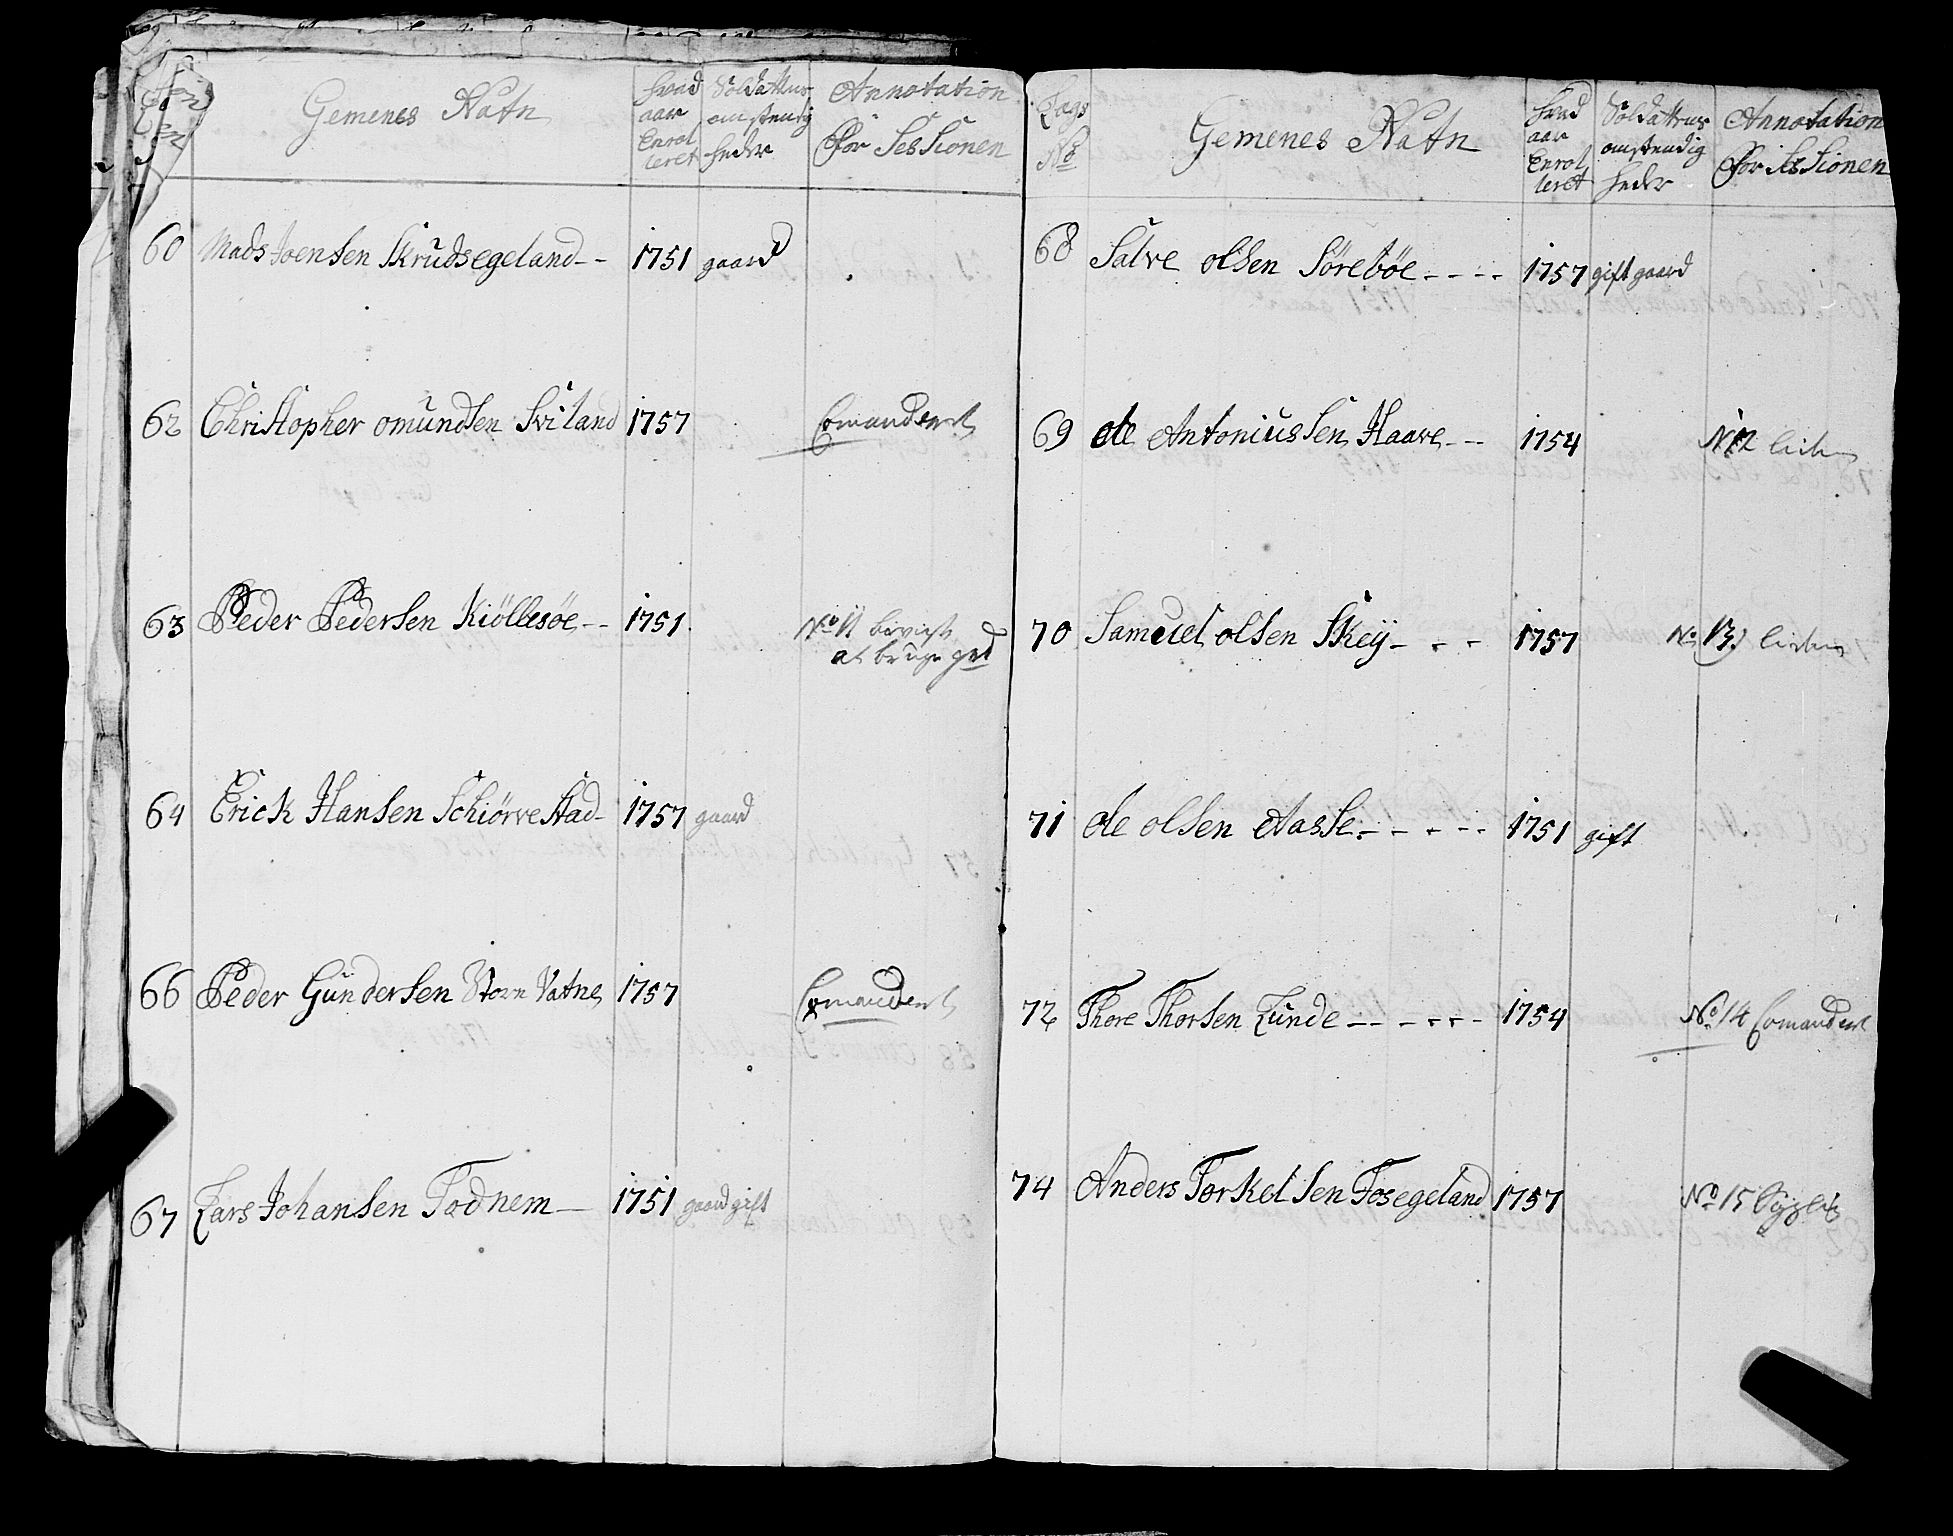 Gemenes Nafn
hvad aar Enrolleret
Soldatens omstendigheder
Annotation For Sessionen
60 Mads Joensen Skrudsegeland - - 1751 gaard
62 Christopher omundsen Sviland 1757 Comandert
63 Peder Pedersen Kiöllesöe - - 1751. No 11 bevigt
at bruge
64 Erick Hansen Schiørvestad - 1757 gaard
66 Peder Gundersen Store Vatne 1757 Comandert
67 Lars Johansen Todnem - 1751 gaard gift
Lags No
Gemenes Nafn
hvad aar Enrolleret
Soldatens omstendigheder
Annotation For Sessionen
68 Salve olsen Sörebøe - - - - 1757 gift gaard
69 ole Antoniussen Haave - - 1754 No 12 liden
70 Samuel olsen Skeij - - - 1757 No 13) liden
71 ole olsen Aasse - - - - - 1751 gift
72 Thore Thorsen Lunde - - - - - - 1754 No 14 Comandert
74 Anders Torkelsen Fosegeland 1757 No 15